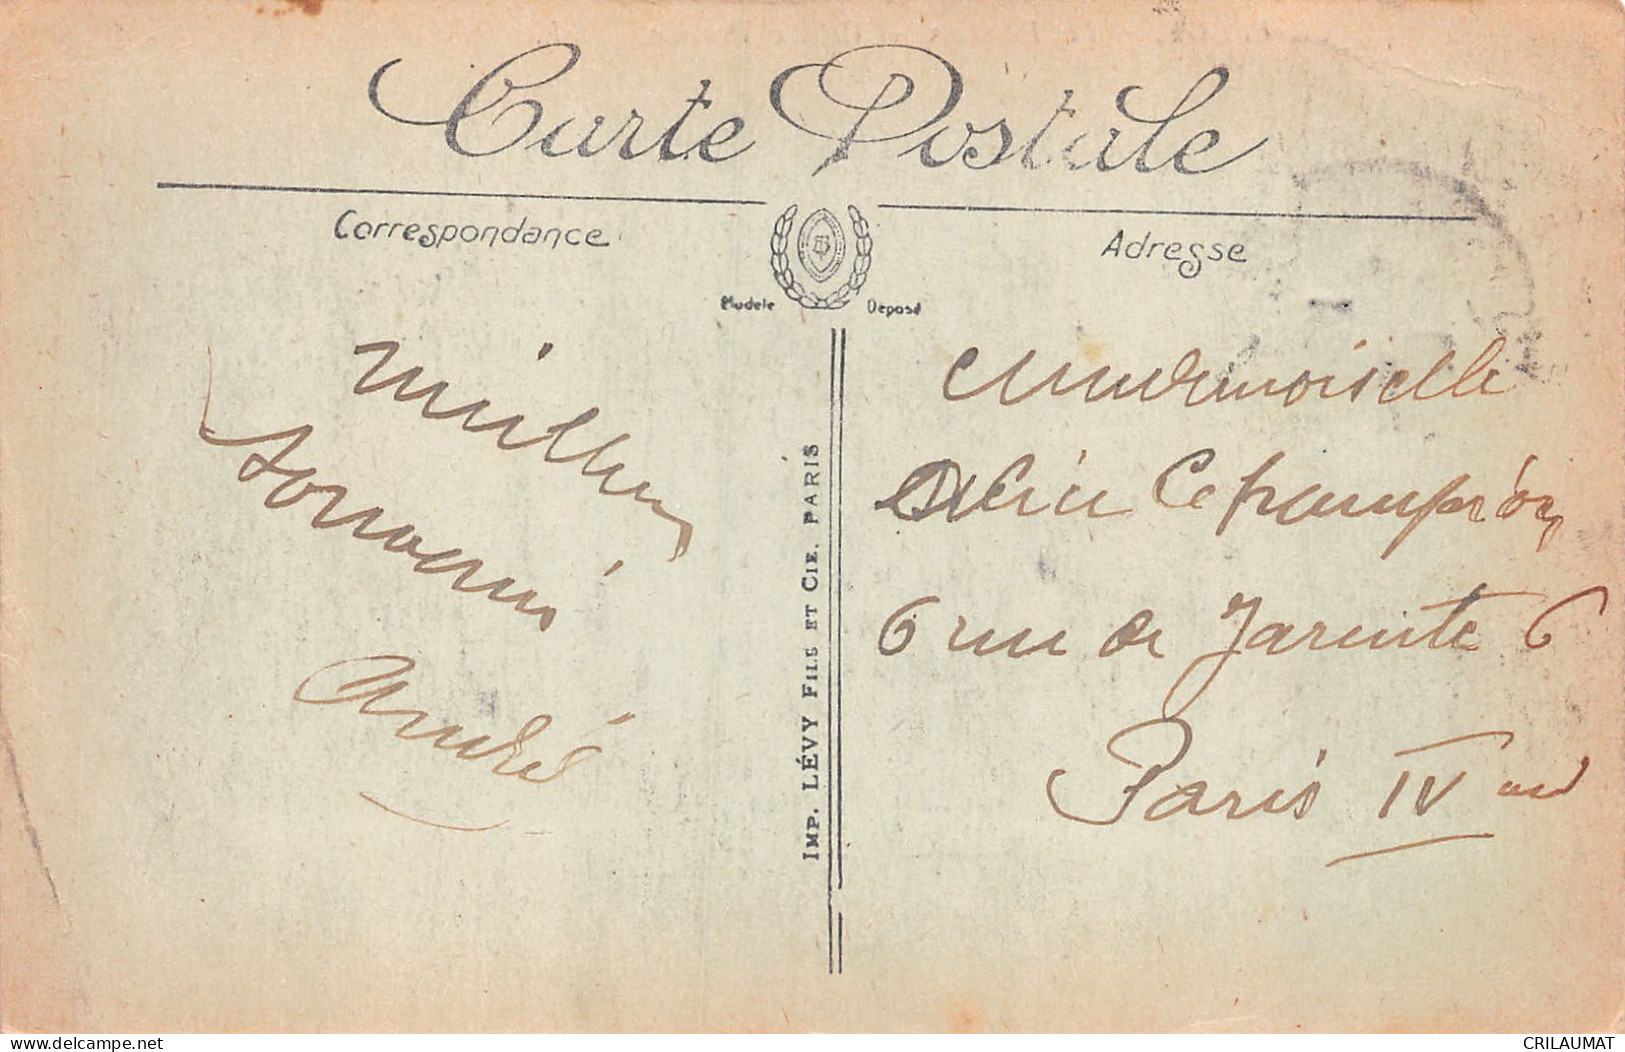 Carte Postale
Correspondance
Adresse
Modèle Déposé
Meilleurs
souvenirs
André
IMP. LÉVY FILS ET CIE. PARIS
Mademoiselle
Lechampion
6 rue de Jarente 6
Paris IV
www.delcampe.net
CRILAUMAT